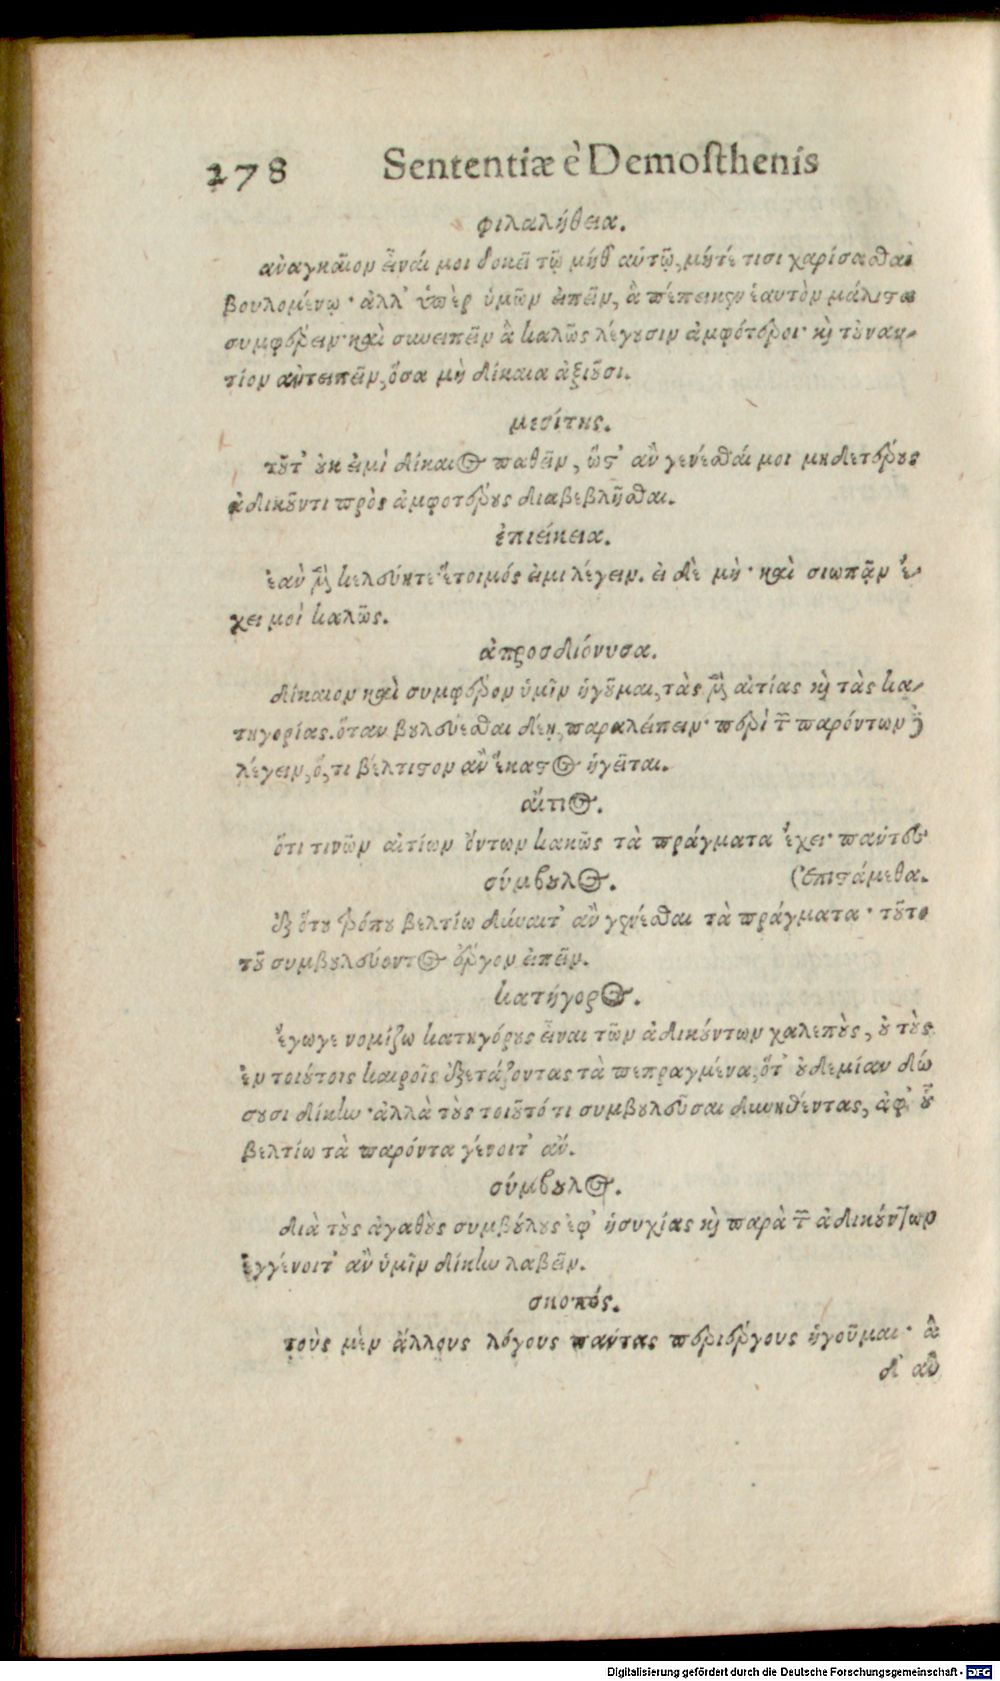 278 Sententiæ è Demosthenis
φιλαλήθεια.
ἀναγκαῖον εἶναί μοι δοκεῖ τῷ μήθ᾽ αὑτῷ, μήτέ τισι χαρίσασθαι
βουλομένῳ· ἀλλ᾽ ὑπὲρ ὑμῶν εἰπεῖν, ἃ πέπεικεν ἑαυτὸν μάλιστα
συμφέρειν· καὶ συνειπεῖν ἃ καλῶς λέγουσιν ἀμφότεροι· καὶ τοὐναν-
τίον ἀντειπεῖν, ὅσα μὴ δίκαια ἀξιοῦσι.
μεσίτης.
τοῦτ᾽ οὐκ εἰμὶ δίκαιος παθεῖν, ὥστ᾽ ἂν γενέσθαί μοι μηδετέρους
ἀδικοῦντι πρὸς ἀμφοτέρους διαβεβλῆσθαι.
ἐπιείκεια.
ἐὰν μὲν κελεύητε ἕτοιμός εἰμι λέγειν. εἰ δὲ μή· καὶ σιωπᾷν ἔ-
χει μοὶ καλῶς.
ἀπροσδιόνυσα.
δίκαιον καὶ συμφέρον ὑμῖν ἡγοῦμαι, τὰς μὲν αἰτίας καὶ τὰς κα-
τηγορίας. ὅταν βουλεύεσθαι δέῃ, παραλείπειν· περὶ τῶν παρόντων δὲ
λέγειν, ὅ, τι βέλτιστον ἂν ἕκαστος ἡγεῖται.
αἴτιος.
ὅτι τινῶν αἰτίων ὄντων κακῶς τὰ πράγματα ἔχει· πάντες
σύμβουλος. (ἐπιστάμεθα.
ἐξ ὅτου τρόπου βελτίω δύναιτ᾽ ἂν γενέσθαι τὰ πράγματα· τοῦτο
τοῦ συμβουλεύοντος ἔργον εἰπεῖν.
κατήγορος.
ἔγωγε νομίζω κατηγόρους εἶναι τῶν ἀδικούντων χαλεποὺς, οὐ τοὺς
ἐν τοιούτοις καιροῖς ἐξετάζοντας τὰ πεπραγμένα, ὅτ᾽ οὐδεμίαν δώ
σουσι δίκην· ἀλλὰ τοὺς τοιοῦτό τι συμβουλεῦσαι δυνηθέντας, ἀφ᾽ οὗ
βελτίω τὰ παρόντα γένοιτ᾽ ἄν.
σύμβουλος.
διὰ τοὺς ἀγαθοὺς συμβούλους ἐφ᾽ ἡσυχίας καὶ παρὰ τῶν ἀδικούντων
ἐγγένοιτ᾽ ἂν ὑμῖν δίκην λαβεῖν.
σκοπός.
τοὺς μὲν ἄλλους λόγους πάντας περιέργους ἡγοῦμαι· ἃ
δ᾽ ἂν
Digitalisierung gefördert durch die Deutsche Forschungsgemeinschaft - DFG